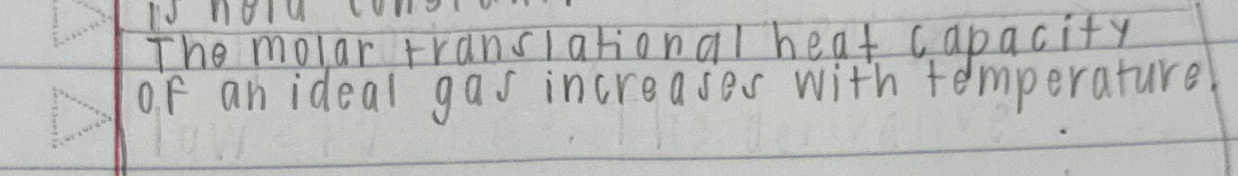 is held
The molar translational heat capacity
of an ideal gas increases with temperature.